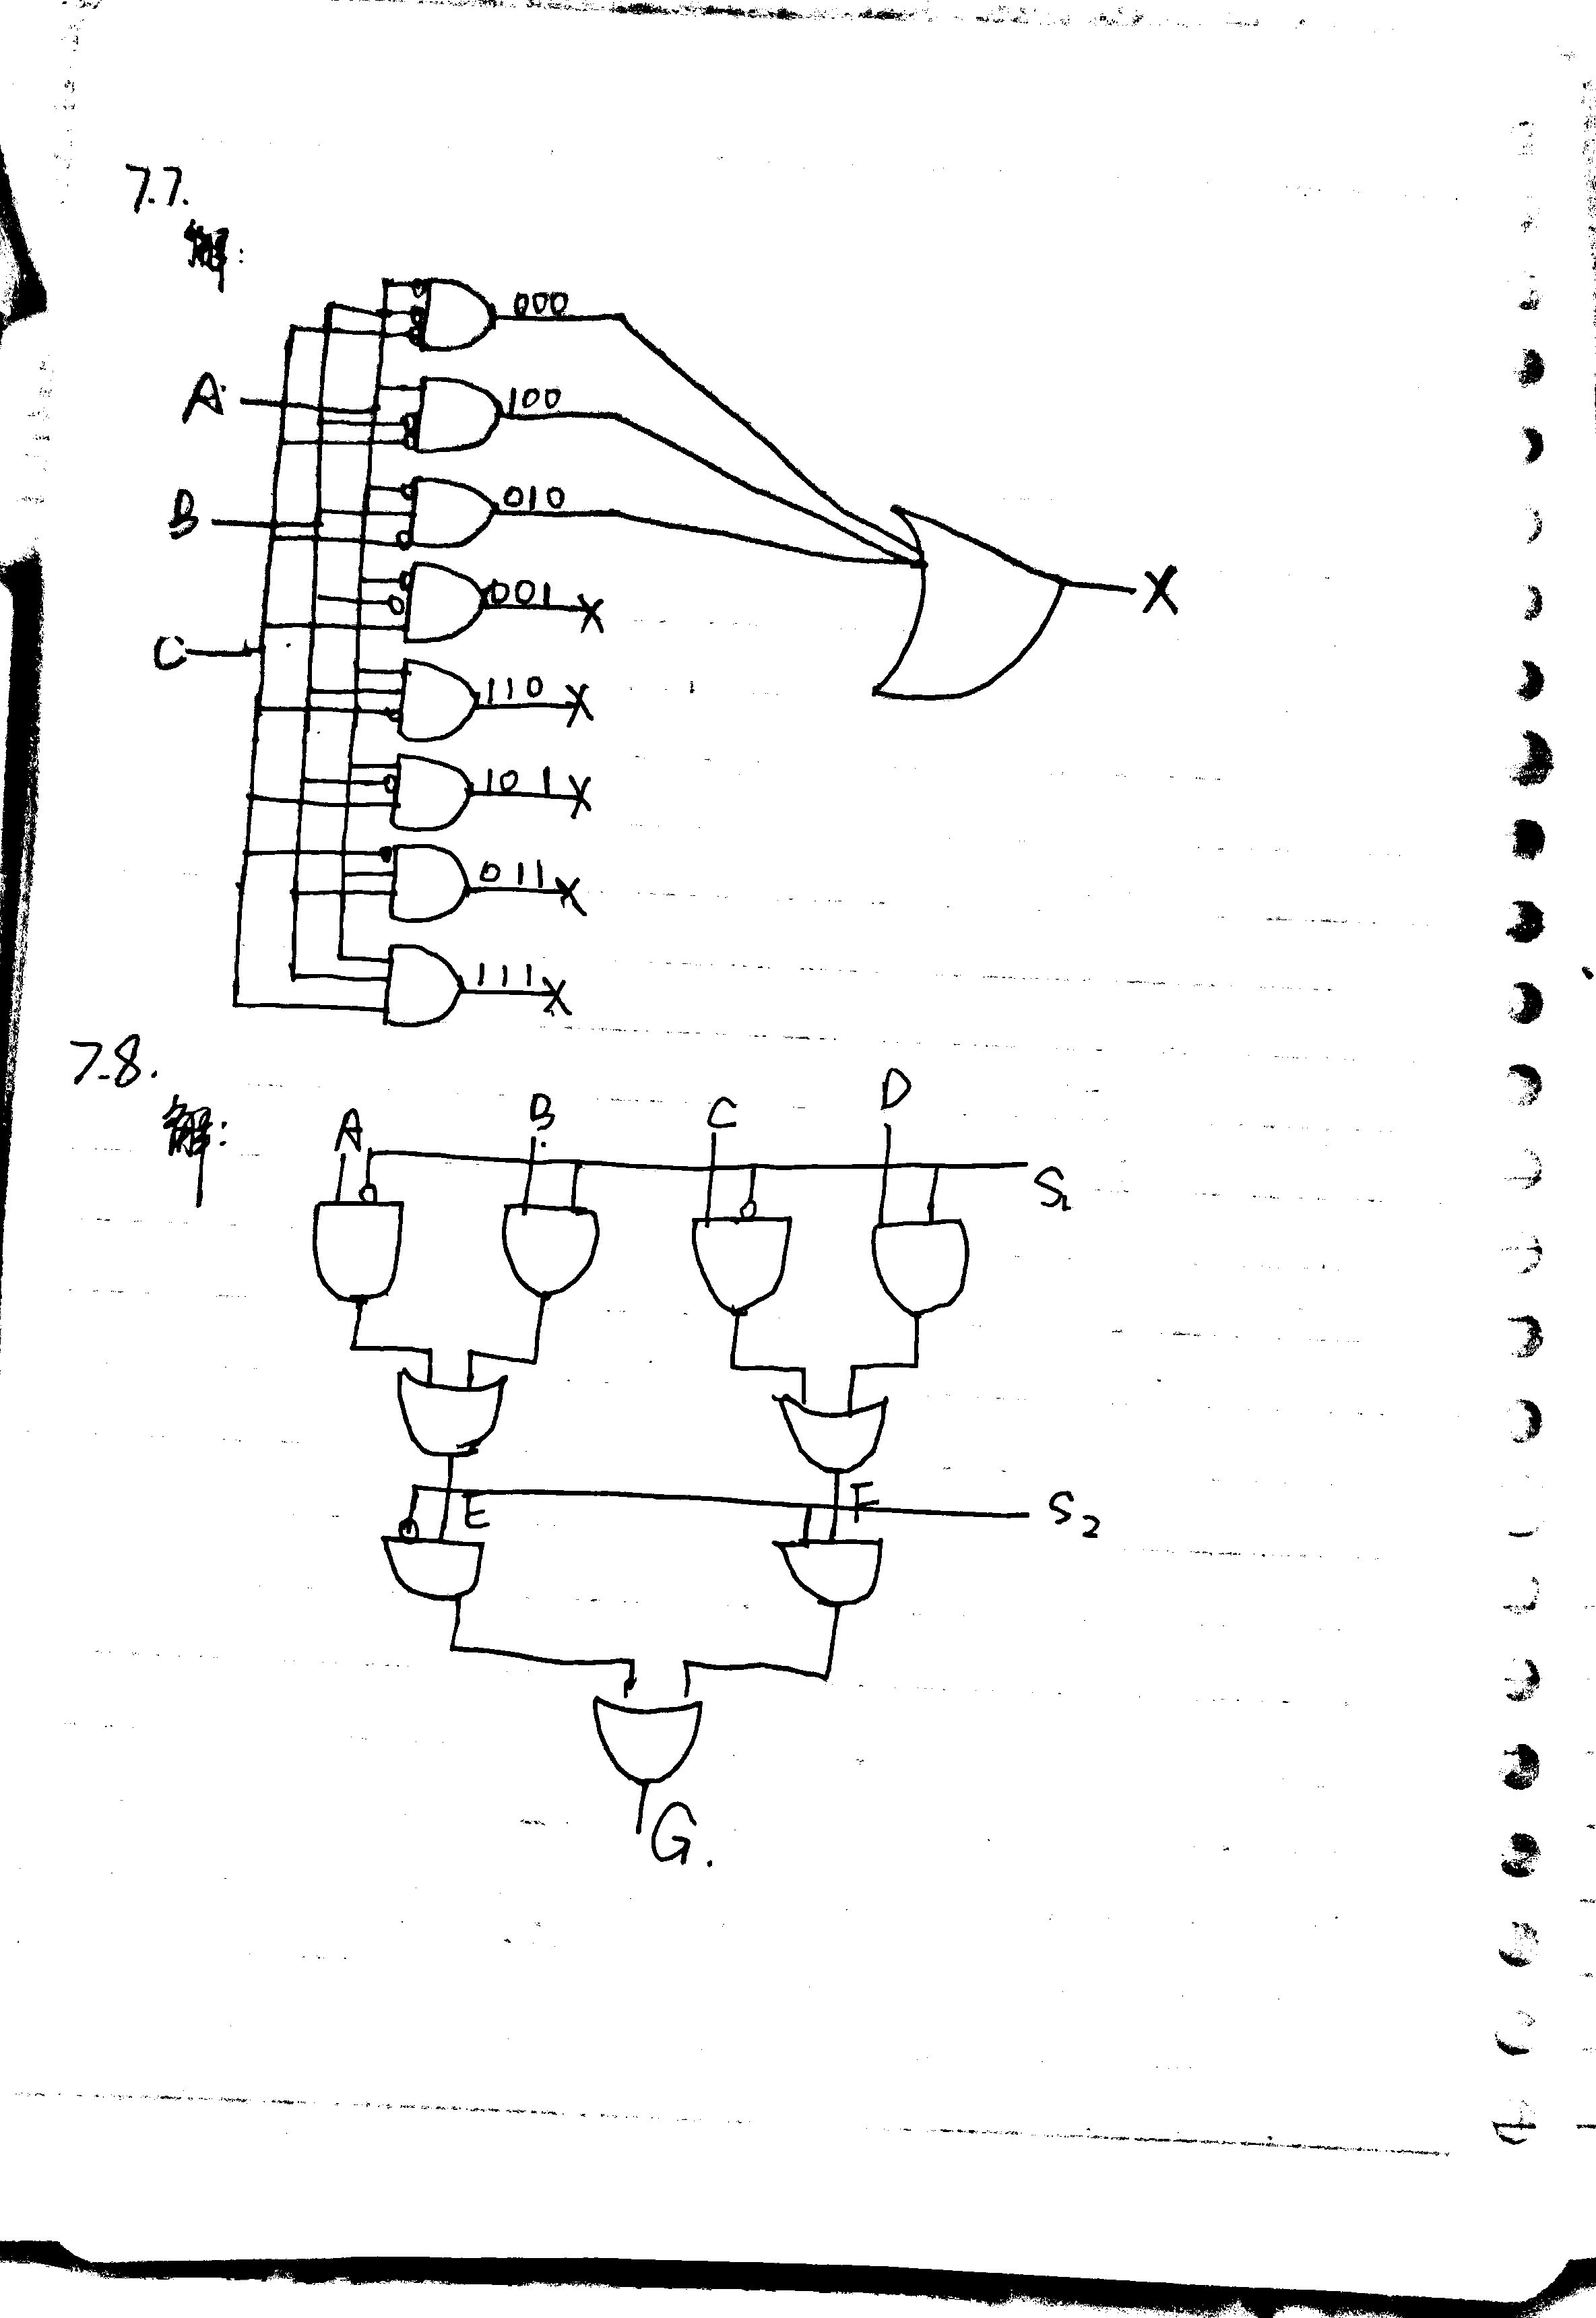 7.7.
解:
000
A
100
B
010
001
X
C
110
101
011
111
7.8.
解:
A B C D
S1
E F S2
G.